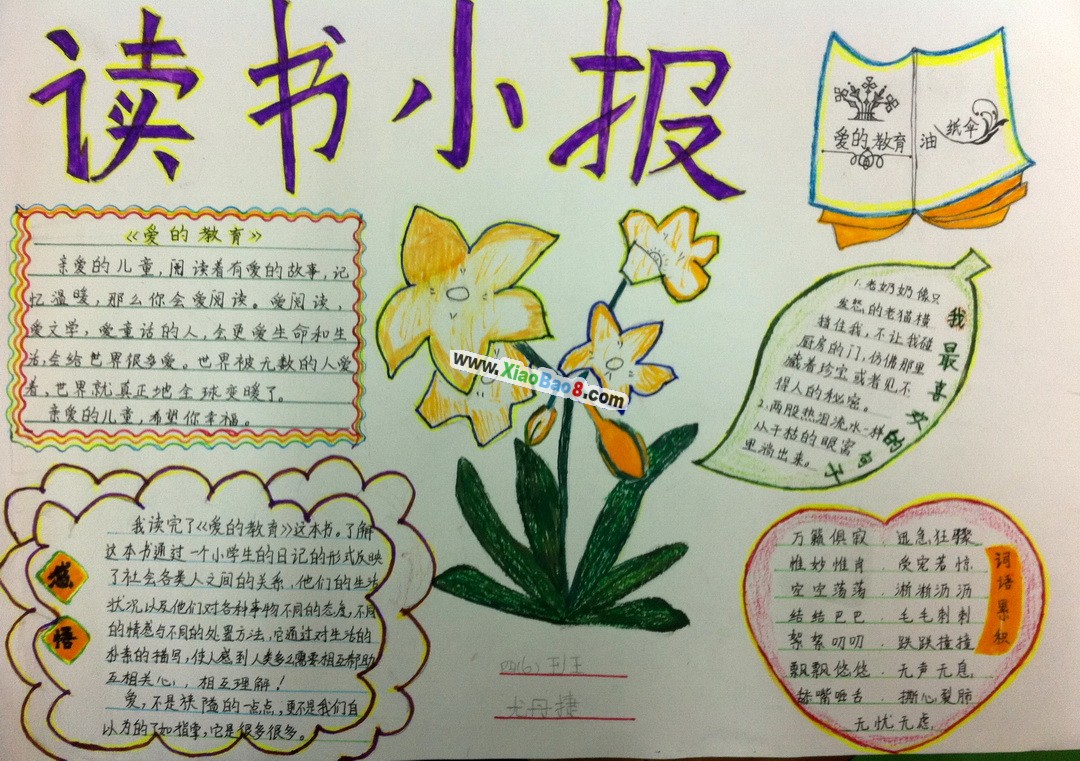 读书小报
爱的教育
油纸伞
《爱的教育》
亲爱的儿童,阅读着有爱的故事,记
忆温暖,那么你会爱阅读。爱阅读,
爱文学,爱童话的人,会更爱生命和生
活,会给世界很多爱。世界被无数的人爱
着,世界就真正地全球变暖了。
亲爱的儿童,希望你幸福。
www.XiaoBao8.com
我最喜欢的句子
1.老奶奶像只
发怒的老猫横
挡住我,不让我碰
厨房的门,仿佛那里
藏着珍宝或者见不
得人的秘密。
2.两股热泪流水一样
从干枯的眼窝
里淌出来。
感悟
我读完了《爱的教育》这本书。了解
这本书通过一个小学生的日记的形式反映
了社会各类人之间的关系,他们的生活
状况以及他们对各种事物不同的态度,不同
的情感与不同的处置方法,它通过对生活的
朴素的描写,使人感到人类多么需要相互帮助
互相关心,相互理解!
爱,不是狭隘的一点点,更不是我们自
以为的了如指掌,它是很多很多。
词语累积
万籁俱寂 迅急狂骤
惟妙惟肖 受宠若惊
空空荡荡 淅淅沥沥
结结巴巴 毛毛刺刺
絮絮叨叨 跌跌撞撞
飘飘悠悠 无声无息
舔嘴咂舌 撕心裂肺
无忧无虑
四(6)班